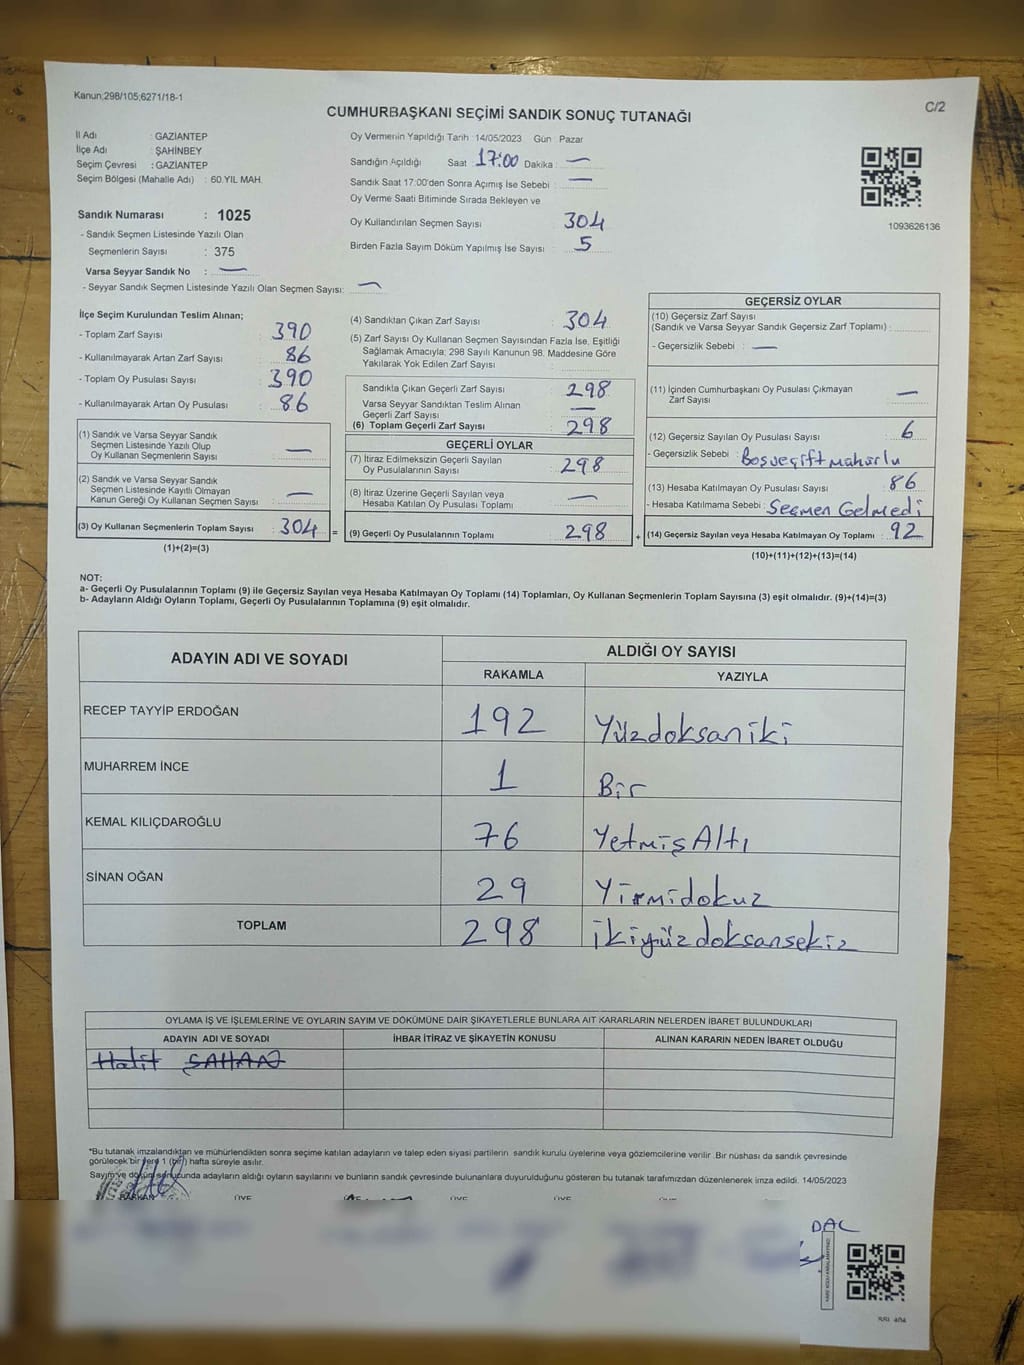 Kanun;298/105;6271/18-1
C/2
CUMHURBAŞKANI SEÇİMİ SANDIK SONUÇ TUTANAĞI
İl Adı : GAZİANTEP
İlçe Adı : ŞAHİNBEY
Seçim Çevresi : GAZİANTEP
Seçim Bölgesi (Mahalle Adı) : 60.YIL MAH.
Sandık Numarası : 1025
- Sandık Seçmen Listesinde Yazılı Olan
Seçmenlerin Sayısı : 375
Varsa Seyyar Sandık No : —
- Seyyar Sandık Seçmen Listesinde Yazılı Olan Seçmen Sayısı: —
Oy Vermenin Yapıldığı Tarih : 14/05/2023 Gün : Pazar
Sandığın Açıldığı Saat : 17:00 Dakika : —
Sandık Saat 17:00'den Sonra Açımış İse Sebebi : —
Oy Verme Saati Bitiminde Sırada Bekleyen ve
Oy Kullandırılan Seçmen Sayısı : 304
Birden Fazla Sayım Döküm Yapılmış İse Sayısı : 5
1093626136
İlçe Seçim Kurulundan Teslim Alınan;
- Toplam Zarf Sayısı : 390
- Kullanılmayarak Artan Zarf Sayısı : 86
- Toplam Oy Pusulası Sayısı : 390
- Kullanılmayarak Artan Oy Pusulası : 86
(1) Sandık ve Varsa Seyyar Sandık
Seçmen Listesinde Yazılı Olup
Oy Kullanan Seçmenlerin Sayısı : —
(2) Sandık ve Varsa Seyyar Sandık
Seçmen Listesinde Kayıtlı Olmayan
Kanun Gereği Oy Kullanan Seçmen Sayısı : —
(3) Oy Kullanan Seçmenlerin Toplam Sayısı : 304 =
(1)+(2)=(3)
(4) Sandıktan Çıkan Zarf Sayısı : 304
(5) Zarf Sayısı Oy Kullanan Seçmen Sayısından Fazla İse, Eşitliği
Sağlamak Amacıyla; 298 Sayılı Kanunun 98. Maddesine Göre
Yakılarak Yok Edilen Zarf Sayısı :
Sandıkta Çıkan Geçerli Zarf Sayısı : 298
Varsa Seyyar Sandıktan Teslim Alınan
Geçerli Zarf Sayısı : —
(6) Toplam Geçerli Zarf Sayısı : 298
GEÇERLİ OYLAR
(7) İtiraz Edilmeksizin Geçerli Sayılan
Oy Pusulalarının Sayısı : 298
(8) İtiraz Üzerine Geçerli Sayılan veya
Hesaba Katılan Oy Pusulası Toplamı : —
(9) Geçerli Oy Pusulalarının Toplamı : 298 +
GEÇERSİZ OYLAR
(10) Geçersiz Zarf Sayısı
(Sandık ve Varsa Seyyar Sandık Geçersiz Zarf Toplamı) :
- Geçersizlik Sebebi : —
(11) İçinden Cumhurbaşkanı Oy Pusulası Çıkmayan
Zarf Sayısı : —
(12) Geçersiz Sayılan Oy Pusulası Sayısı : 6
- Geçersizlik Sebebi : Boşveçiftmühürlü
(13) Hesaba Katılmayan Oy Pusulası Sayısı : 86
- Hesaba Katılmama Sebebi : Seçmen Gelmedi
(14) Geçersiz Sayılan veya Hesaba Katılmayan Oy Toplamı : 92
(10)+(11)+(12)+(13)=(14)
NOT:
a- Geçerli Oy Pusulalarının Toplamı (9) ile Geçersiz Sayılan veya Hesaba Katılmayan Oy Toplamı (14) Toplamları, Oy Kullanan Seçmenlerin Toplam Sayısına (3) eşit olmalıdır. (9)+(14)=(3)
b- Adayların Aldığı Oyların Toplamı, Geçerli Oy Pusulalarının Toplamına (9) eşit olmalıdır.
ADAYIN ADI VE SOYADI ALDIĞI OY SAYISI
RAKAMLA YAZIYLA
RECEP TAYYİP ERDOĞAN 192 Yüzdoksaniki
MUHARREM İNCE 1 Bir
KEMAL KILIÇDAROĞLU 76 YetmişAltı
SİNAN OĞAN 29 Yirmidokuz
TOPLAM 298 ikiyüzdoksansekiz
OYLAMA İŞ VE İŞLEMLERİNE VE OYLARIN SAYIM VE DÖKÜMÜNE DAİR ŞİKAYETLERLE BUNLARA AİT KARARLARIN NELERDEN İBARET BULUNDUKLARI
ADAYIN ADI VE SOYADI İHBAR İTİRAZ VE ŞİKAYETİN KONUSU ALINAN KARARIN NEDEN İBARET OLDUĞU
Halit ŞAHAN
*Bu tutanak imzalandıktan ve mühürlendikten sonra seçime katılan adayların ve talep eden siyasi partilerin sandık kurulu üyelerine veya gözlemcilerine verilir. Bir nüshası da sandık çevresinde
görülecek bir yere 1 (bir) hafta süreyle asılır.
Sayım ve döküm sonucunda adayların aldığı oyların sayılarını ve bunların sandık çevresinde bulunanlara duyurulduğunu gösteren bu tutanak tarafımızdan düzenlenerek imza edildi. 14/05/2023
BAŞKAN ÜYE ÜYE ÜYE ÜYE
DAL